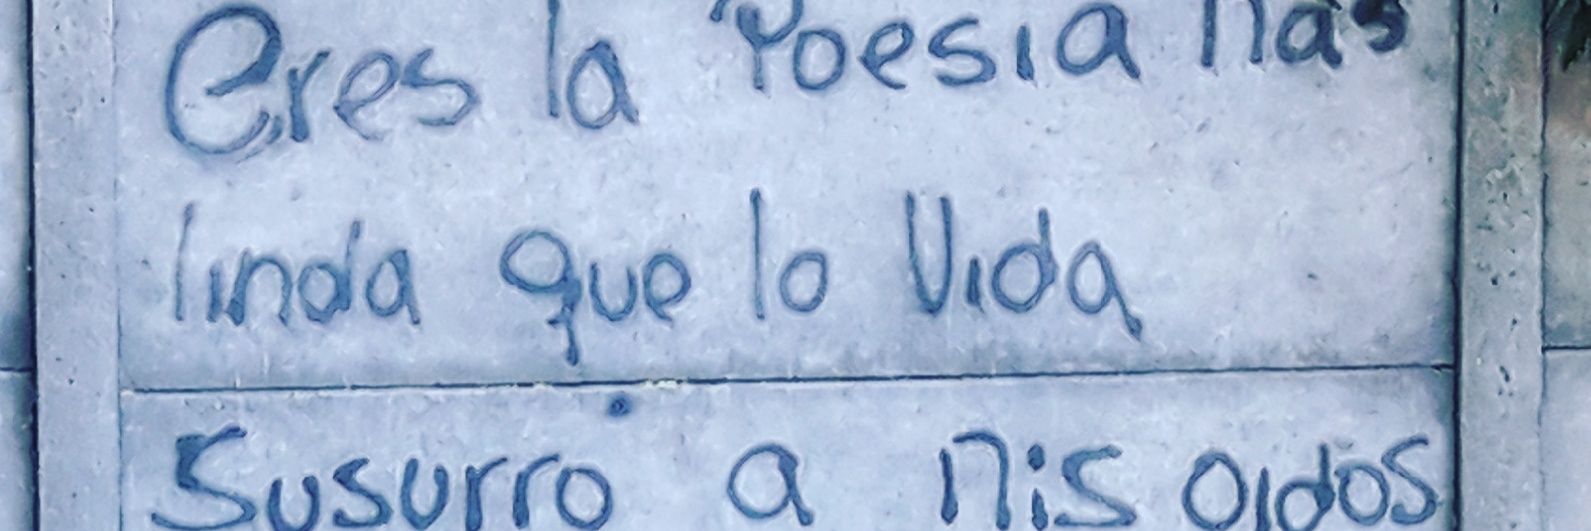 Eres la Poesia mas
linda que la Vida
Susurró a mis oidos